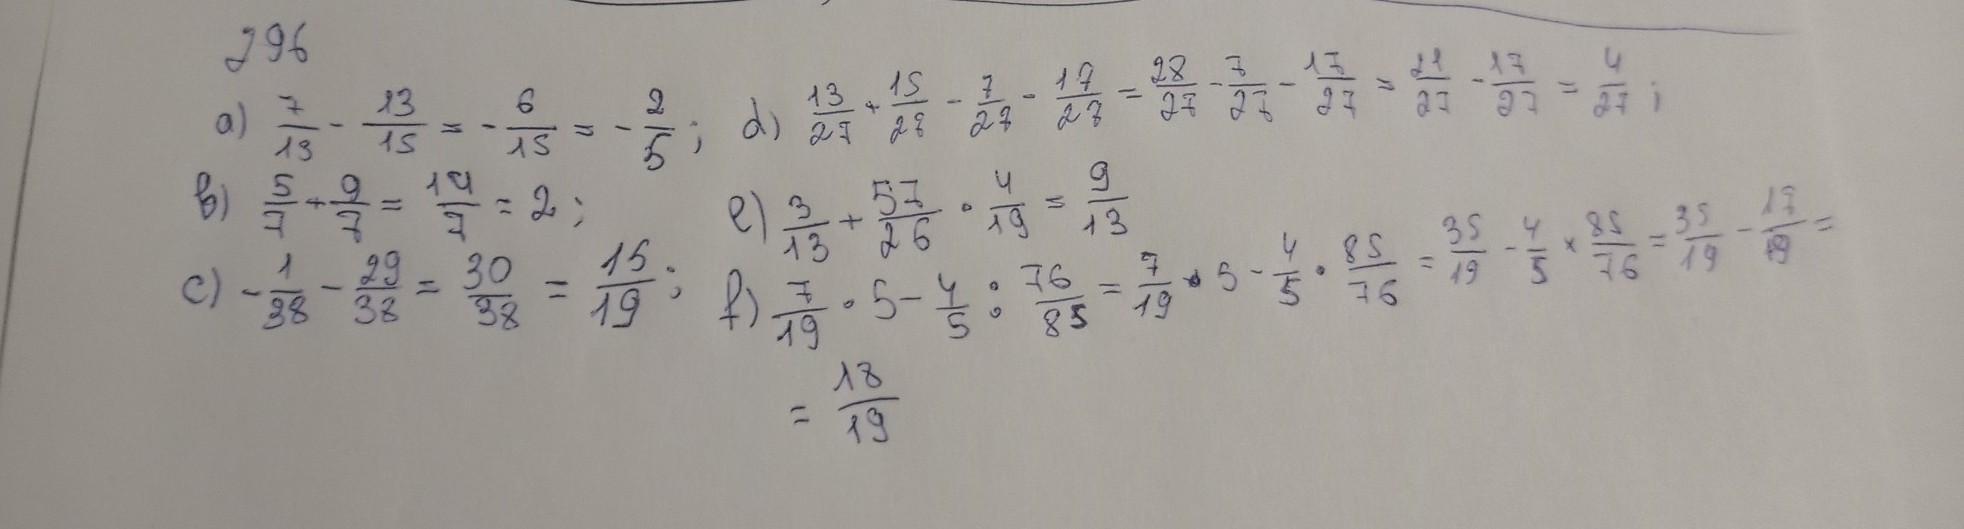 296
a) 7/13 - 13/15 = - 6/15 = - 2/5 ; d) 13/27 + 15/27 - 7/27 - 17/27 = 28/27 - 7/27 - 17/27 = 21/27 - 17/27 = 4/27 ;
b) 5/7 + 9/7 = 14/7 = 2 ; e) 3/13 + 57/26 · 4/19 = 9/13
c) - 1/38 - 29/38 = 30/38 = 15/19 ; f) 7/19 · 5 - 4/5 : 76/85 = 7/19 · 5 - 4/5 · 85/76 = 35/19 - 4/5 × 85/76 = 35/19 - 17/19 =
= 18/19